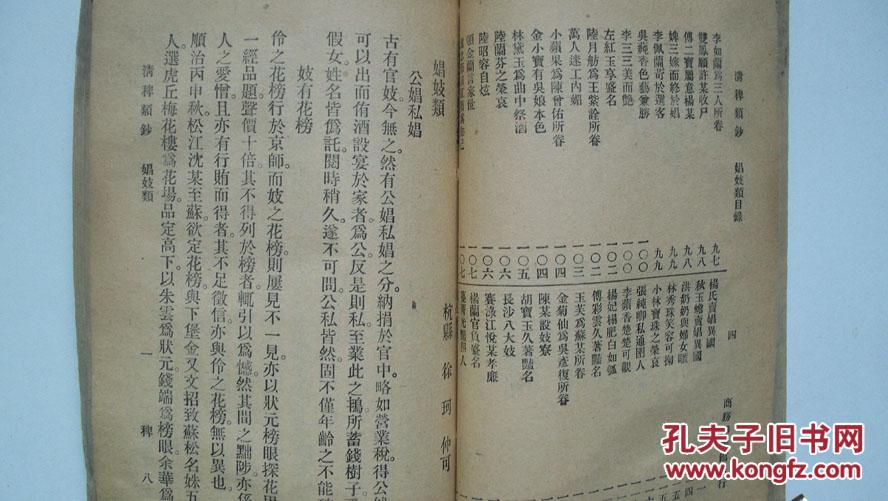 清稗類鈔　娼妓類目錄
四
李如蘭爲三人所眷
雙鳳願許某收尸
傅二寶屬意楊某
婢三嫁而終於娼
李佩蘭寄於選客
吳蒓香色藝兼勝
李三三美而艷
左紅玉享盛名
陸月舫爲王紫詮所眷
萬人迷工內媚
小蘋果爲陳曾佑所眷
金小寶有吳娘本色
林黛玉爲曲中祭酒
陸蘭芬之榮哀
陸昭容自炫
九七
九八
九八
九九
九九
一〇〇
一〇〇
一〇二
一〇二
一〇三
一〇四
一〇四
一〇五
一〇六
一〇六
一〇七
一〇七
楊氏賣娼異國
秋玉蟾賣娼異國
洪奶奶與婦女暱
林秀珠笑容可掬
小林寶珠之榮哀
張純卿私通圉人
李蘋香楚楚可觀
楊妃楊肥白如瓠
傅彩雲久著豔名
王芙爲蘇某所眷
金菊仙爲吳彥復所眷
陳某設妓寮
胡寶玉久著豔名
長沙八大妓
賽淥江悅某孝廉
楊蘭官負盛名
娼妓類
杭縣　徐　珂　仲可
公娼私娼
古有官妓今無之然有公娼私娼之分納捐於官中略如營業稅得公
可以出而侑酒設宴於家者爲公反是則私至業此之鴇所蓄錢樹子
假女姓名皆僞託閱時稍久遂不可問公私皆然固不僅年齡之不能
妓有花榜
伶之花榜行於京師而妓之花榜則屢見不一見亦以狀元榜眼探花
一經品題聲價十倍其不得列於榜者輒引以爲憾然其間之黜陟亦係
人之愛憎且亦有行賄而得者其不足徵信亦與伶之花榜無以異也
順治丙申秋松江沈某至蘇欲定花榜與下堡金又文招致蘇松名姝五
人選虎丘梅花樓爲花場品定高下以朱雲爲狀元錢端爲榜眼余華爲
清稗類鈔　娼妓類
一
稗　八
孔夫子旧书网
www.kongfz.com